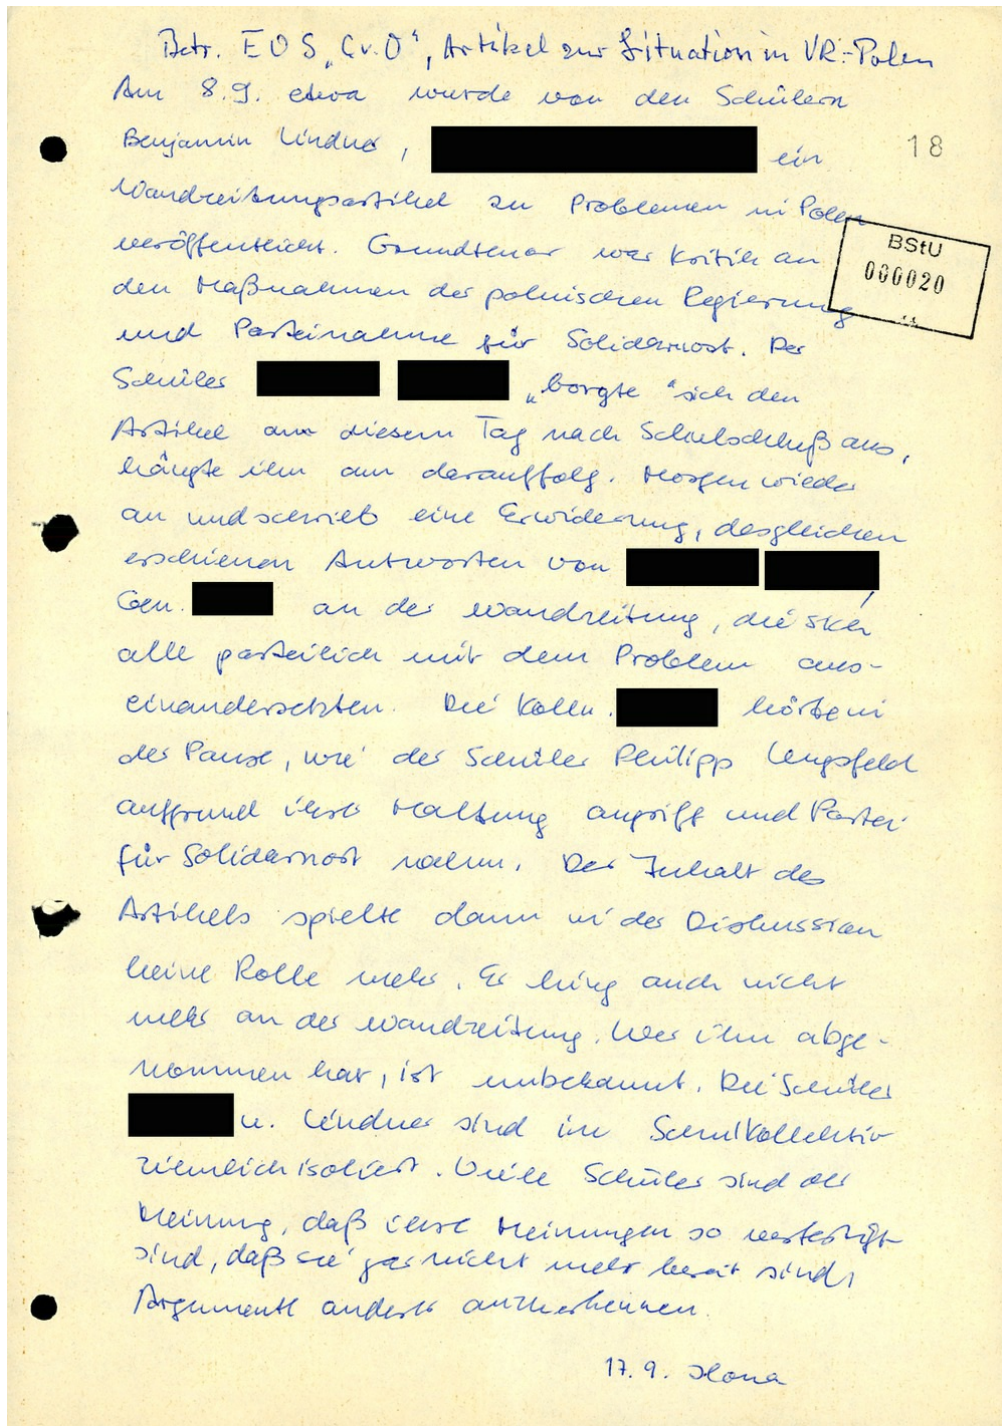 Betr. EOS „C.v.O", Artikel zur Situation in VR-Polen
Am 8.9. etwa wurde von den Schülern
Benjamin Lindner, ein
18
Wandzeitungsartikel zu Problemen in Polen
veröffentlicht. Grundtenor war Kritik an
BStU
000020
den Maßnahmen der polnischen Regierung
und Parteinahme für Solidarnost. Der
Schüler „borgte" sich den
Artikel an diesem Tag nach Schulschluß aus,
hängte ihn am darauffolg. Morgen wieder
an und schrieb eine Erwiderung, desgleichen
erschienen Antworten von ,
Gen. an der Wandzeitung, die sich
alle parteilich mit dem Problem aus-
einandersetzten. Die Kolln. hörte in
der Pause, wie der Schüler Philipp Lengsfeld
aufgrund ihrer Haltung angriff und Partei
für Solidarnost nahm. Der Inhalt des
Artikels spielte dann in der Diskussion
keine Rolle mehr. Er hing auch nicht
mehr an der Wandzeitung. Wer ihn abge-
nommen hat, ist unbekannt. Die Schüler
u. Lindner sind im Schulkollektiv
ziemlich isoliert. Viele Schüler sind der
Meinung, daß ihre Meinungen so verfestigt
sind, daß sie gar nicht mehr bereit sind,
Argumente anderer anzuerkennen.
17.9. Ilona